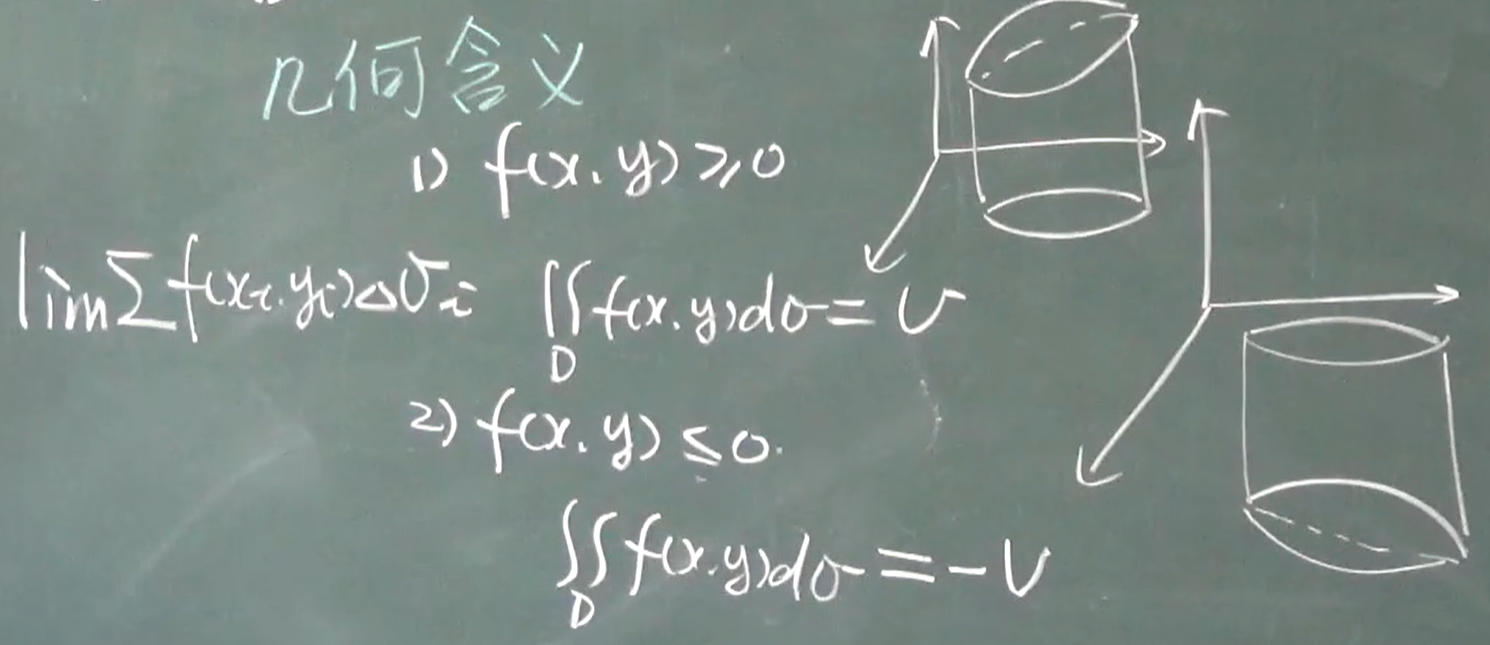 几何含义
1) f(x.y)≥0
lim∑f(xi.yi)△σi ∬f(x.y)dσ=V
D
2) f(x.y)≤0.
∬f(x.y)dσ=-V
D